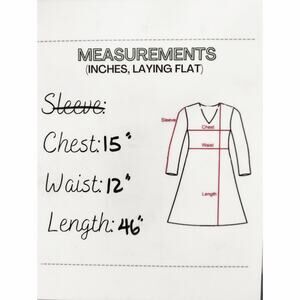 MEASUREMENTS
(INCHES, LAYING FLAT)
Sleeve:
Chest: 15"
Waist: 12"
Length: 46"
Sleeve
Chest
Waist
Length